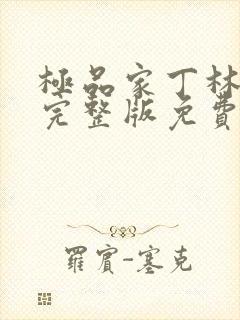 極品家丁林
完整版免費
羅賓-塞克